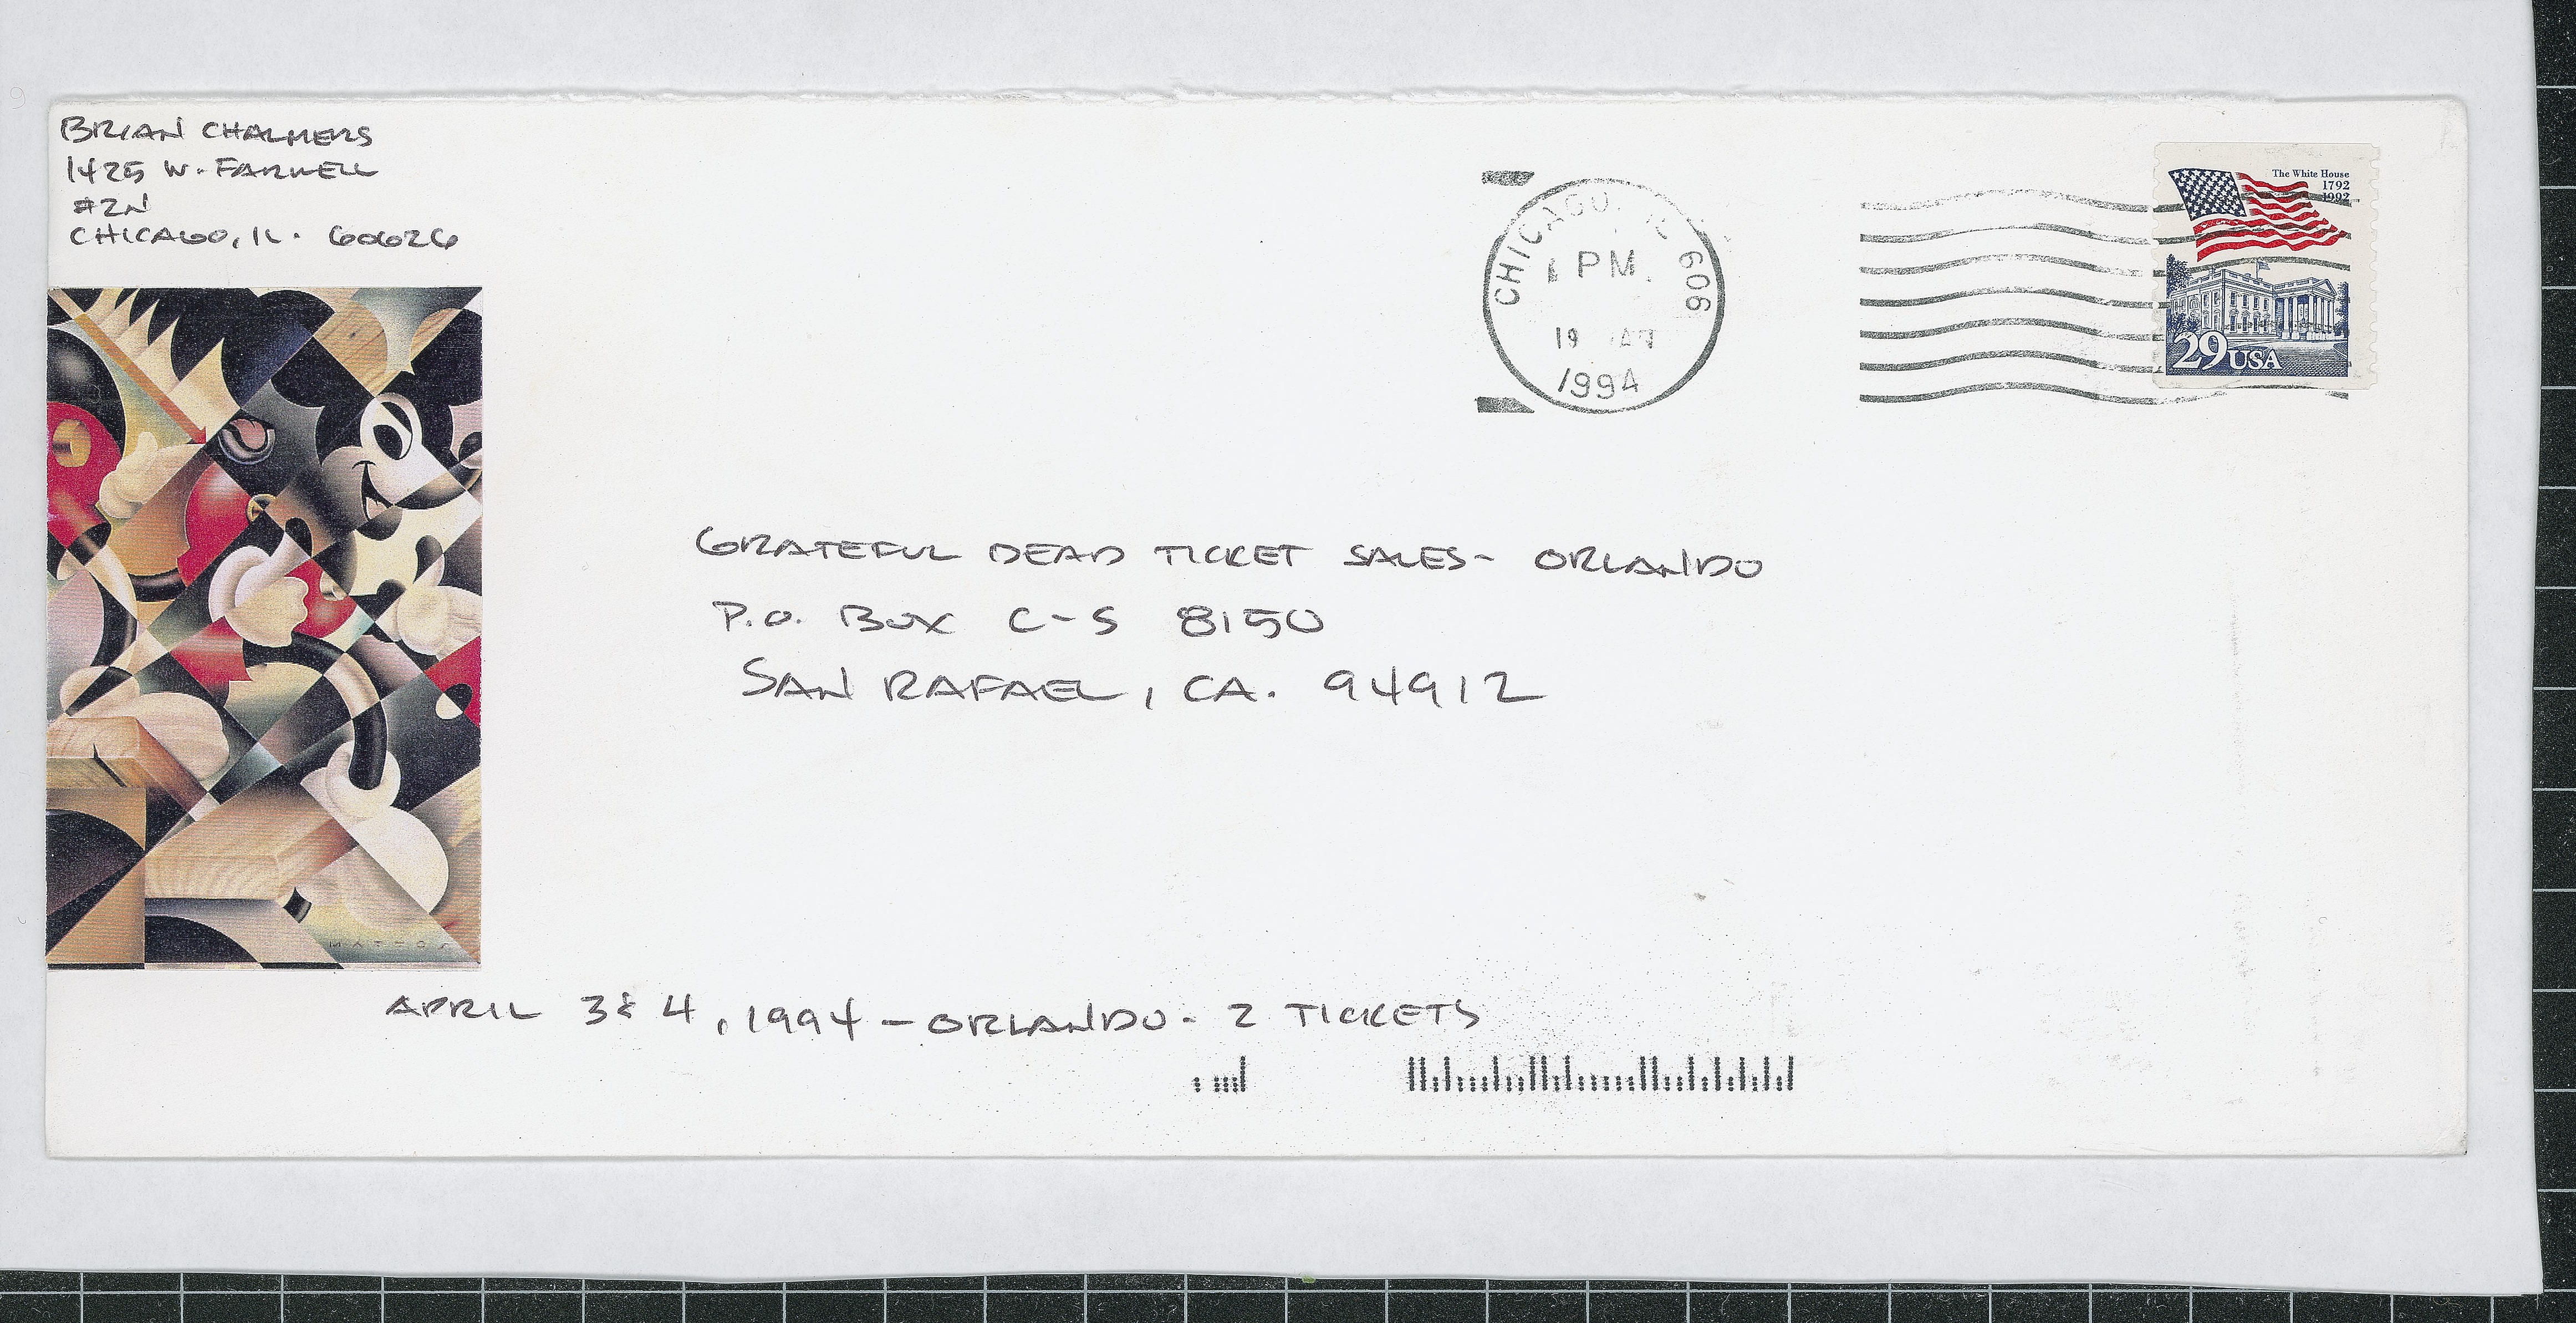 BRIAN CHALMERS
1425 W. FARWELL
#2N
CHICAGO, IL. 60626
CHICAGO, IL 606
PM
19
1994
The White House
1792
1992
29 USA
GRATEFUL DEAD TICKET SALES- ORLANDO
P.O. BOX C-S 8150
SAN RAFAEL, CA. 94912
MATTOS
APRIL 3 & 4, 1994 - ORLANDO - 2 TICKETS